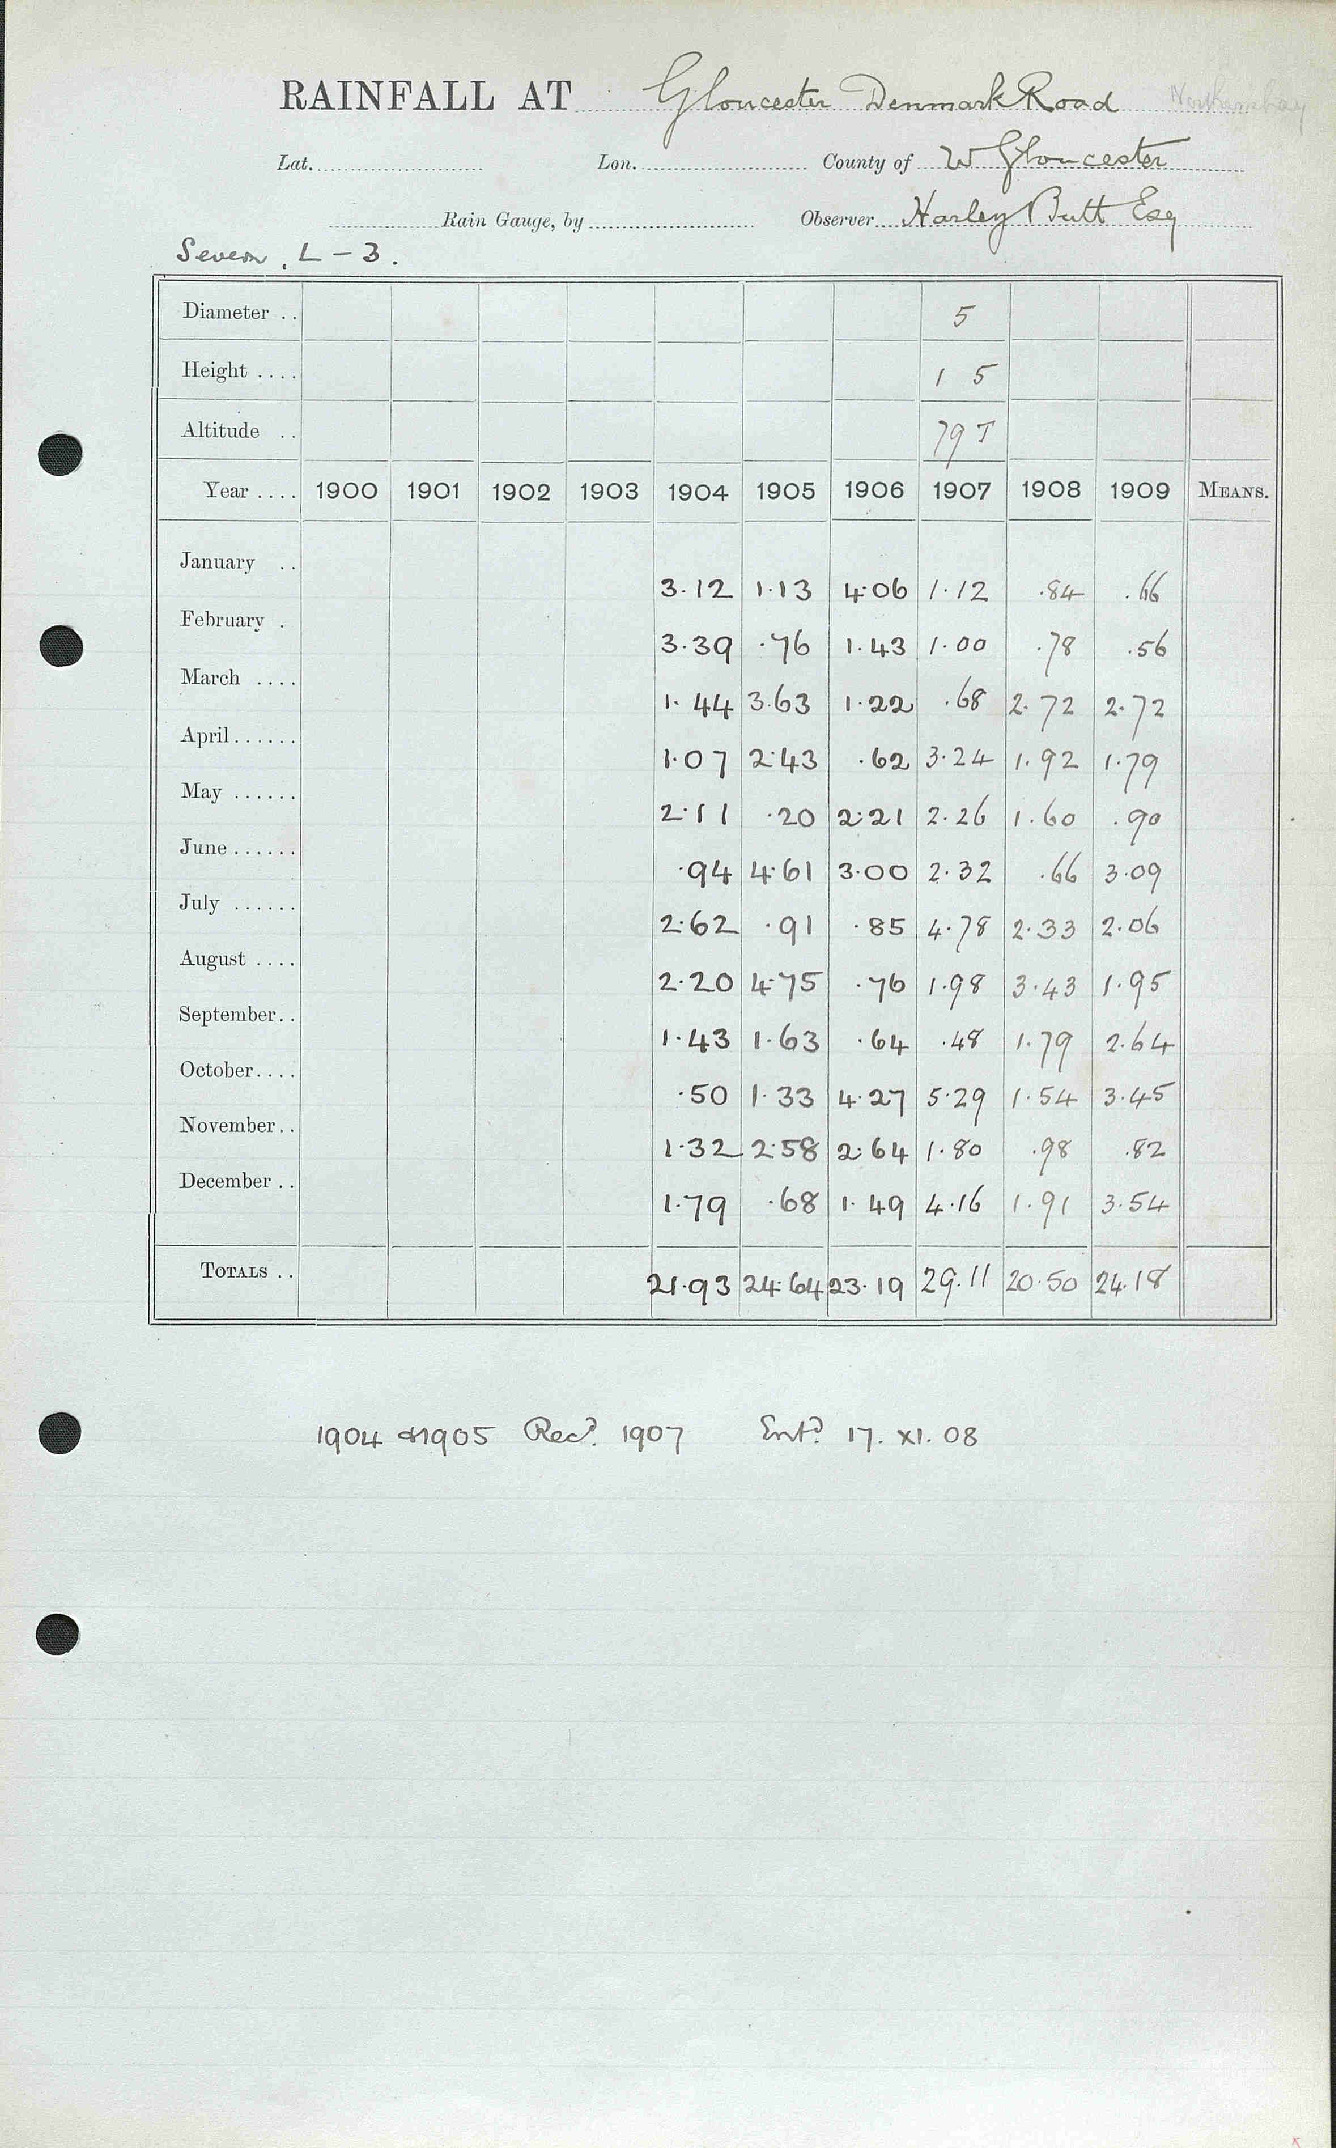 RAINFALL AT Gloucester Denmark Road
Lat. Lon. County of W Gloucester
Rain Gauge, by Observer Harley Butt Esq
Severn, L - 3.
Diameter .. 5
Height .... 1 5
Altitude .. 79 T
Year .... 1900 1901 1902 1903 1904 1905 1906 1907 1908 1909 MEANS.
January .. 3.12 1.13 4.06 1.12 .84 .66
February . 3.39 .76 1.43 1.00 .78 .56
March .... 1.44 3.63 1.22 .68 2.72 2.72
April...... 1.07 2.43 .62 3.24 1.92 1.79
May ...... 2.11 .20 2.21 2.26 1.60 .90
June...... .94 4.61 3.00 2.32 .66 3.09
July ...... 2.62 .91 .85 4.78 2.33 2.06
August .... 2.20 4.75 .76 1.98 3.43 1.95
September.. 1.43 1.63 .64 .48 1.79 2.64
October.... .50 1.33 4.27 5.29 1.54 3.45
November.. 1.32 2.58 2.64 1.80 .98 .82
December .. 1.79 .68 1.49 4.16 1.91 3.54
TOTALS .. 21.93 24.64 23.19 29.11 20.50 24.18
1904 & 1905 Recd. 1907 Entd. 17. XI. 08